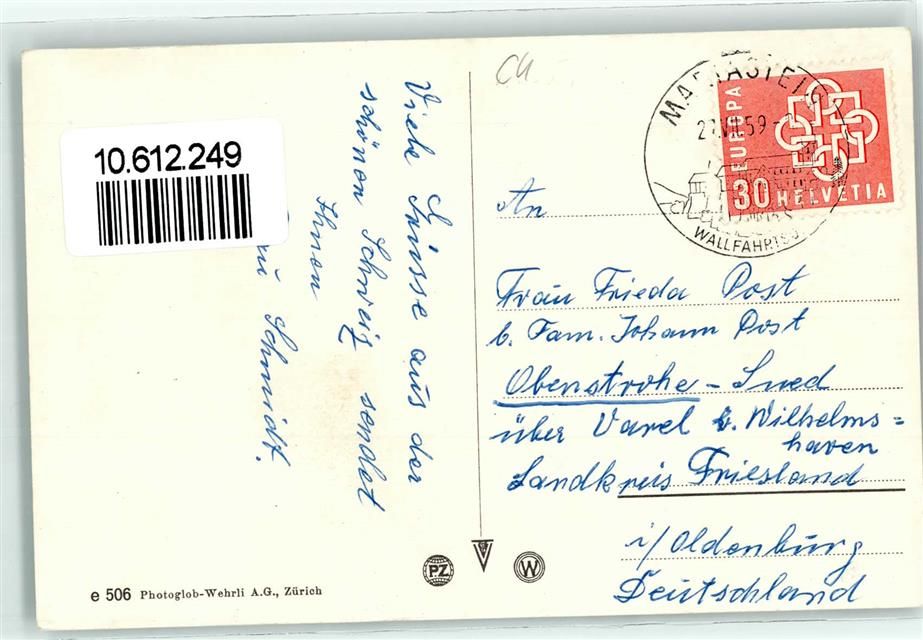 10.612.249
Viele Grüsse aus der
schönen Schweiz sendet
Ihnen
Schmidt.
e 506 Photoglob-Wehrli A.G., Zürich
PZ
W
CH
MARIASTEIN
27.VII.59
WALLFAHRTSO
EUROPA
30 HELVETIA
An
Frau Frieda Post
b. Fam. Johann Post
Obenstrohe - Sued
über Varel b. Wilhelms=
haven
Landkreis Friesland
i/Oldenburg
Deutschland